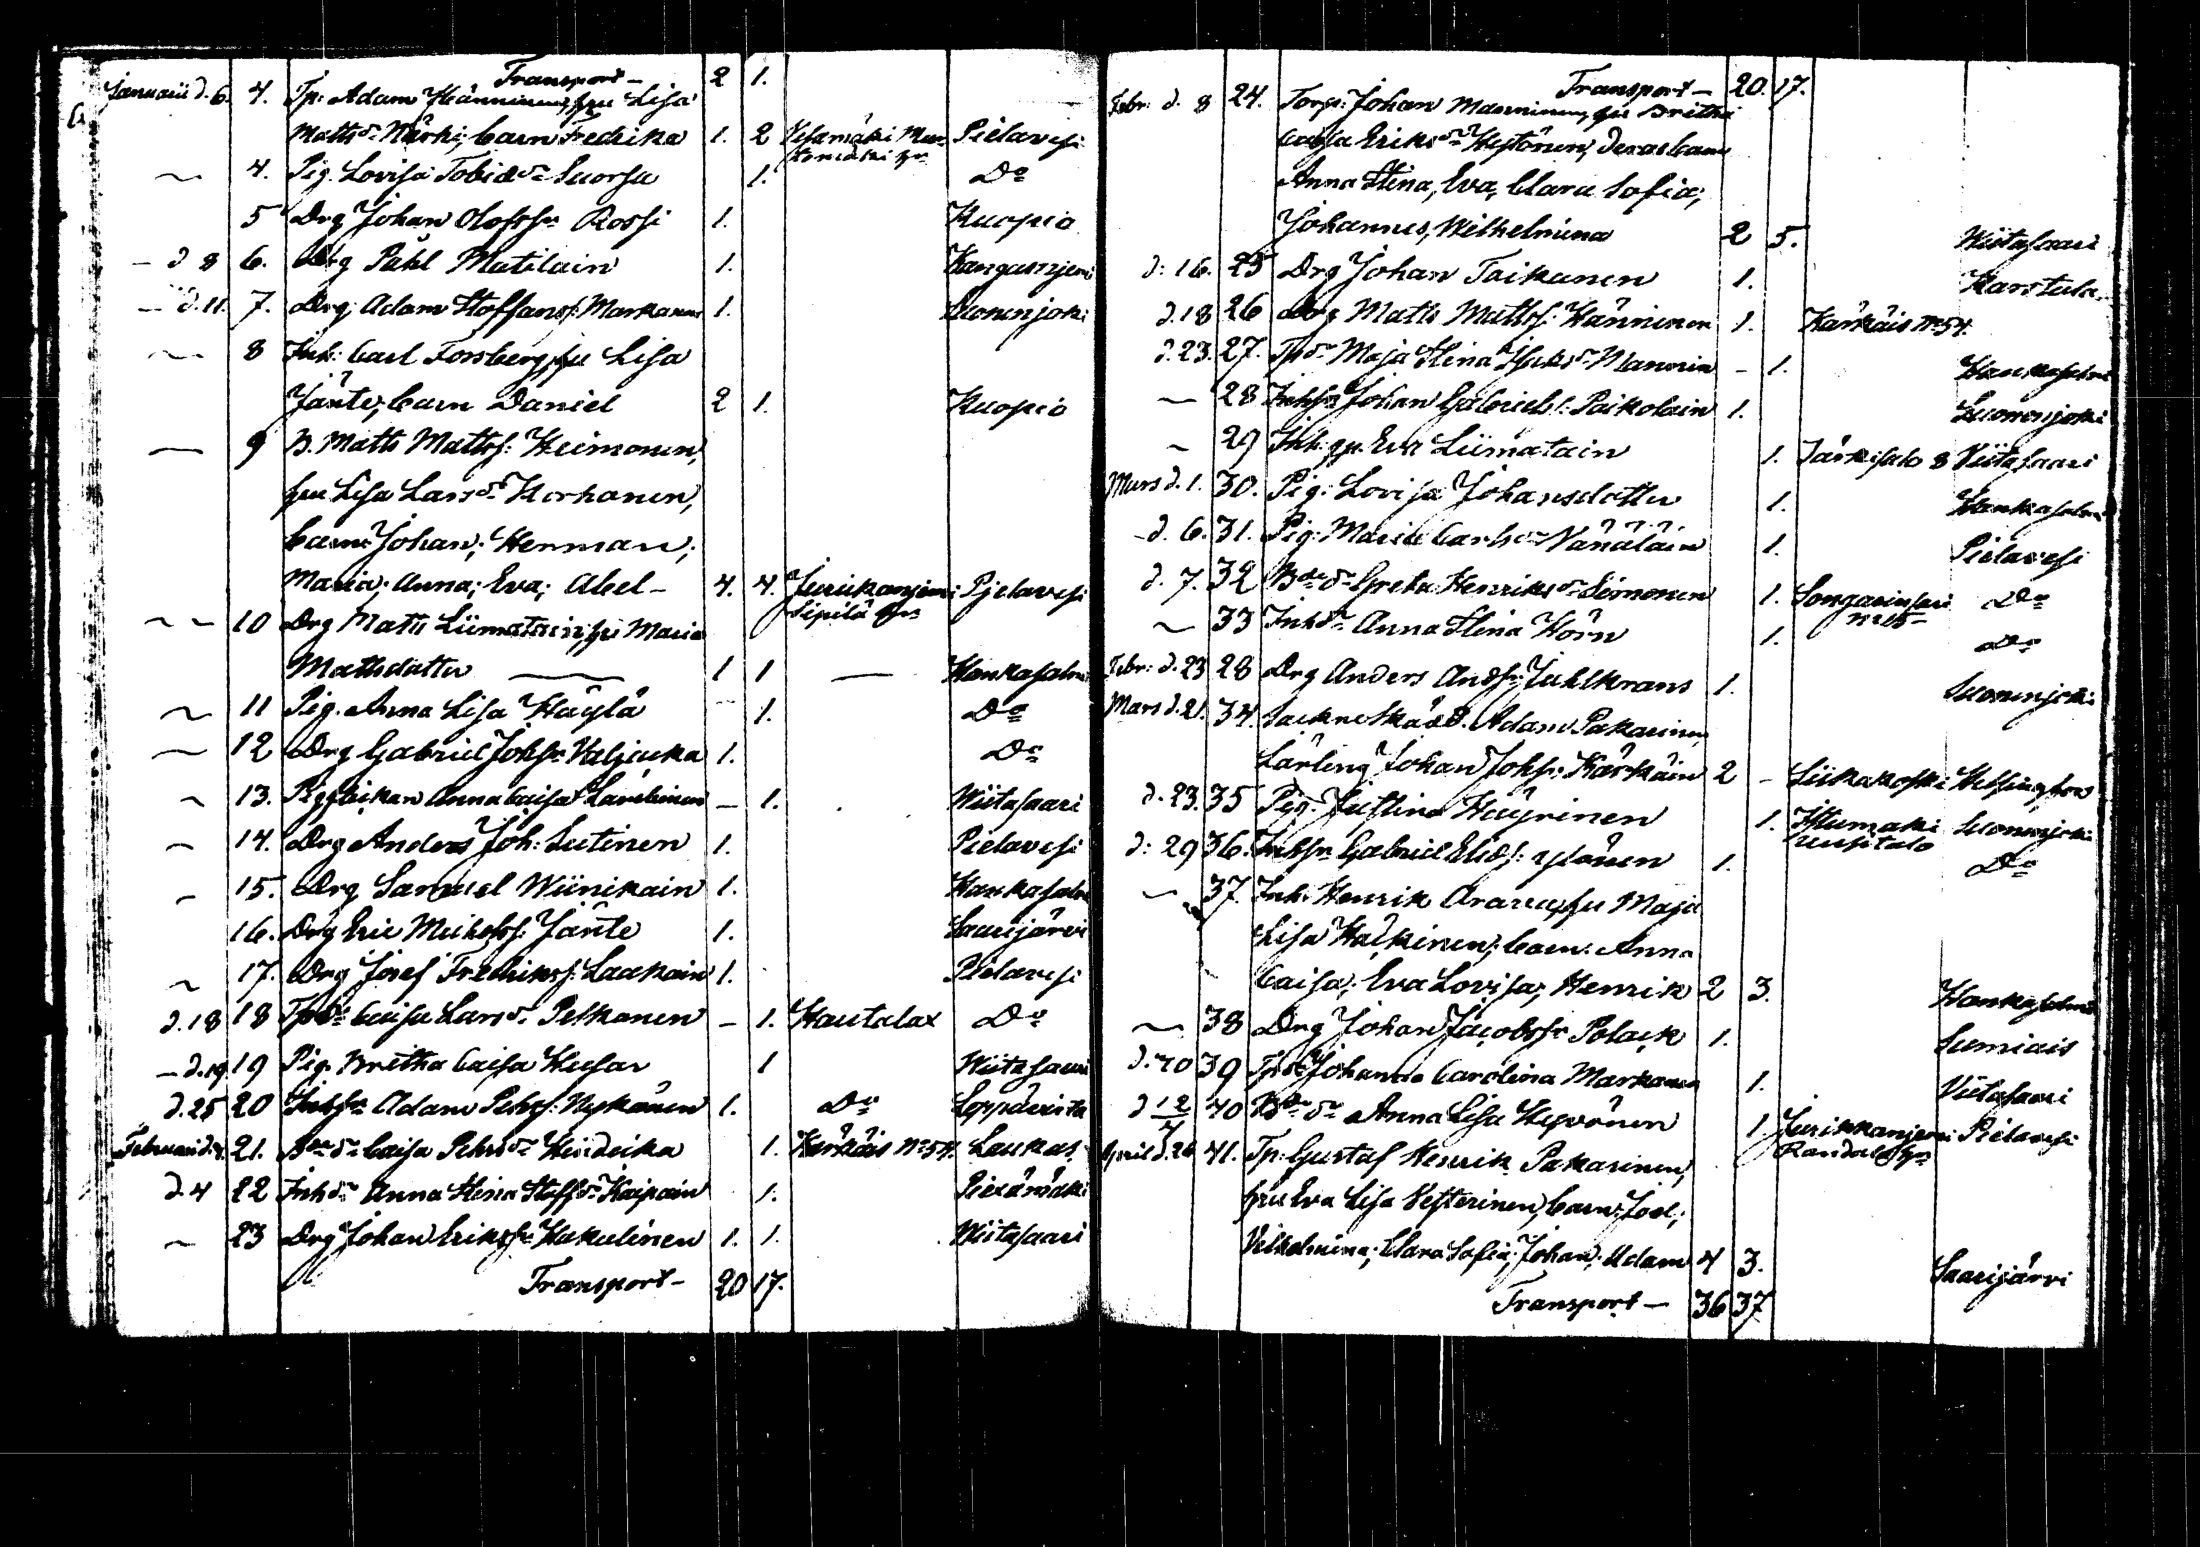 Transport — 2 1.
Januarii d. 6. 4. Tp: Adam Hänninen, hu Lisa
Mattsdr Närhi; barn Fredrika 1. 2 Pielavesi
4. Pig. Lovisa Tobiædr Suorsa 1. Do
5 Drg Johan Olofssn Rossi 1. Kuopio
— d 8 6. Drg Påhl Matilain 1. Kangasnjemi
— d. 11. 7. Drg Adam Staffanss: Markanen 1. Suonenjoki
8 Inh: Carl Forsberg, hu Lisa
Jänte, barn Daniel 2 1. Kuopio
9 B. Matts Mattss: Heimonen,
hu Lisa Larsdr Korhonen,
barn: Johan; Herman;
Maria; Anna; Eva; Abel — 4. 4. Jurikanjemi Pjelavesi
Sipilä
10 Drg Matts Liimatain, hu Maria
Mattsdotter 1 1 — Hankasalmi
11 Pig. Anna Lisa Häylä 1. Do
12 Drg Gabriel Johssn Veljacka 1. Do
13. Pigflickan Anna Caisa — 1. Wiitasaari
14. Drg Anders Joh: Sutinen 1. Pielavesi
15. Drg Samuel Wiinikain 1. Hankasalmi
16. Drg Eric Mickelss: Jänte 1. Saarijärvi
17. Drg Josef Fredrikss: Laakain 1. Pielavesi
d. 18 18 Caisa Larsdr Pelkonen — 1. Hautalax Do
— d. 19 19 Pig. Britha Caisa Husar 1 Wiitasaari
d. 25 20 Inhssn Adam Pehrs: Nykänen 1. Do Leppävirta
Februari d. 4. 21. Bdedr Caisa Pehrsdr 1. Kärkäis No 54. Laukas
d. 4 22 Inhdr Anna Stina Staffdr Kaipain 1. Piexämäki
23 Drg Johan Erikssn Hakulinen 1. 1. Wiitasaari
Transport — 20 17.
Transport — 20. 17.
Febr: d. 8 24. Torp: Johan Manninen, hu Britha
Caisa Eriksdr Hytönen, deras barn
Anna Stina, Eva, Clara Sofia;
Johannes, Wilhelmina 2 5. Wiitasaari
d: 16. 25 Drg Johan Taikanen 1. Karstula
d. 18 26 Drg Matts Mattss: Hänninen 1. Kärkäis No 54.
d. 23. 27. Tpdr Maja Stina Mannin — 1. Hankasalmi
28 Inhssn Johan Gabriels: Paikolain 1. Suonenjoki
29 Inh. Eva Liimatain 1. Särkisalo 8 Viitasaari
Mars d. 1. 30. Pig: Lovisa Johansdotter 1. Hankasalmi
d. 6. 31. Pig: Maria Carlsdr Vänäläin 1. Pielavesi
d. 7. 32 Bdedr Greta Henriksdr Simonen 1. Songarinsari Do
No 15
33 Inhdr Anna Stina Hörn 1. Do
Febr: d. 23 28 Drg Anders Andssn Juhlkrans 1. Suonenjoki
Mars d. 21. 34. Adam Pakarinen,
Lärling Johan Johssn Kärkäin 2 — Liikakoski Helsingfors
d. 23. 35 Pig. Justina Häyrinen 1. Istumäki Suonenjoki
Uusitalo
d: 29 36. Inhssn Gabriel Eliæs: Ylönen 1. Do
37. Inh: Henrik Arava, hu Maja
Lisa Halkinen; barn: Anna
Caisa; Eva Lovisa; Henrik 2 3. Hankasalmi
38 Drg Johan Jacobssn Polack 1. Sumiais
39 Johanna Carolina Markanen 1. Viitasaari
d 12/4 40 Bdedr Anna Lisa Hyvönen 1. Jurikkanjemi Pielavesi
April d. 26 41. Tp: Gustaf Henrik Pakarinen,
hu Eva Lisa Vesterinen, barn: Joel;
Vilhelmina; Clara Sofia; Johan; Adam 4 3. Saarijärvi
Transport — 36 37